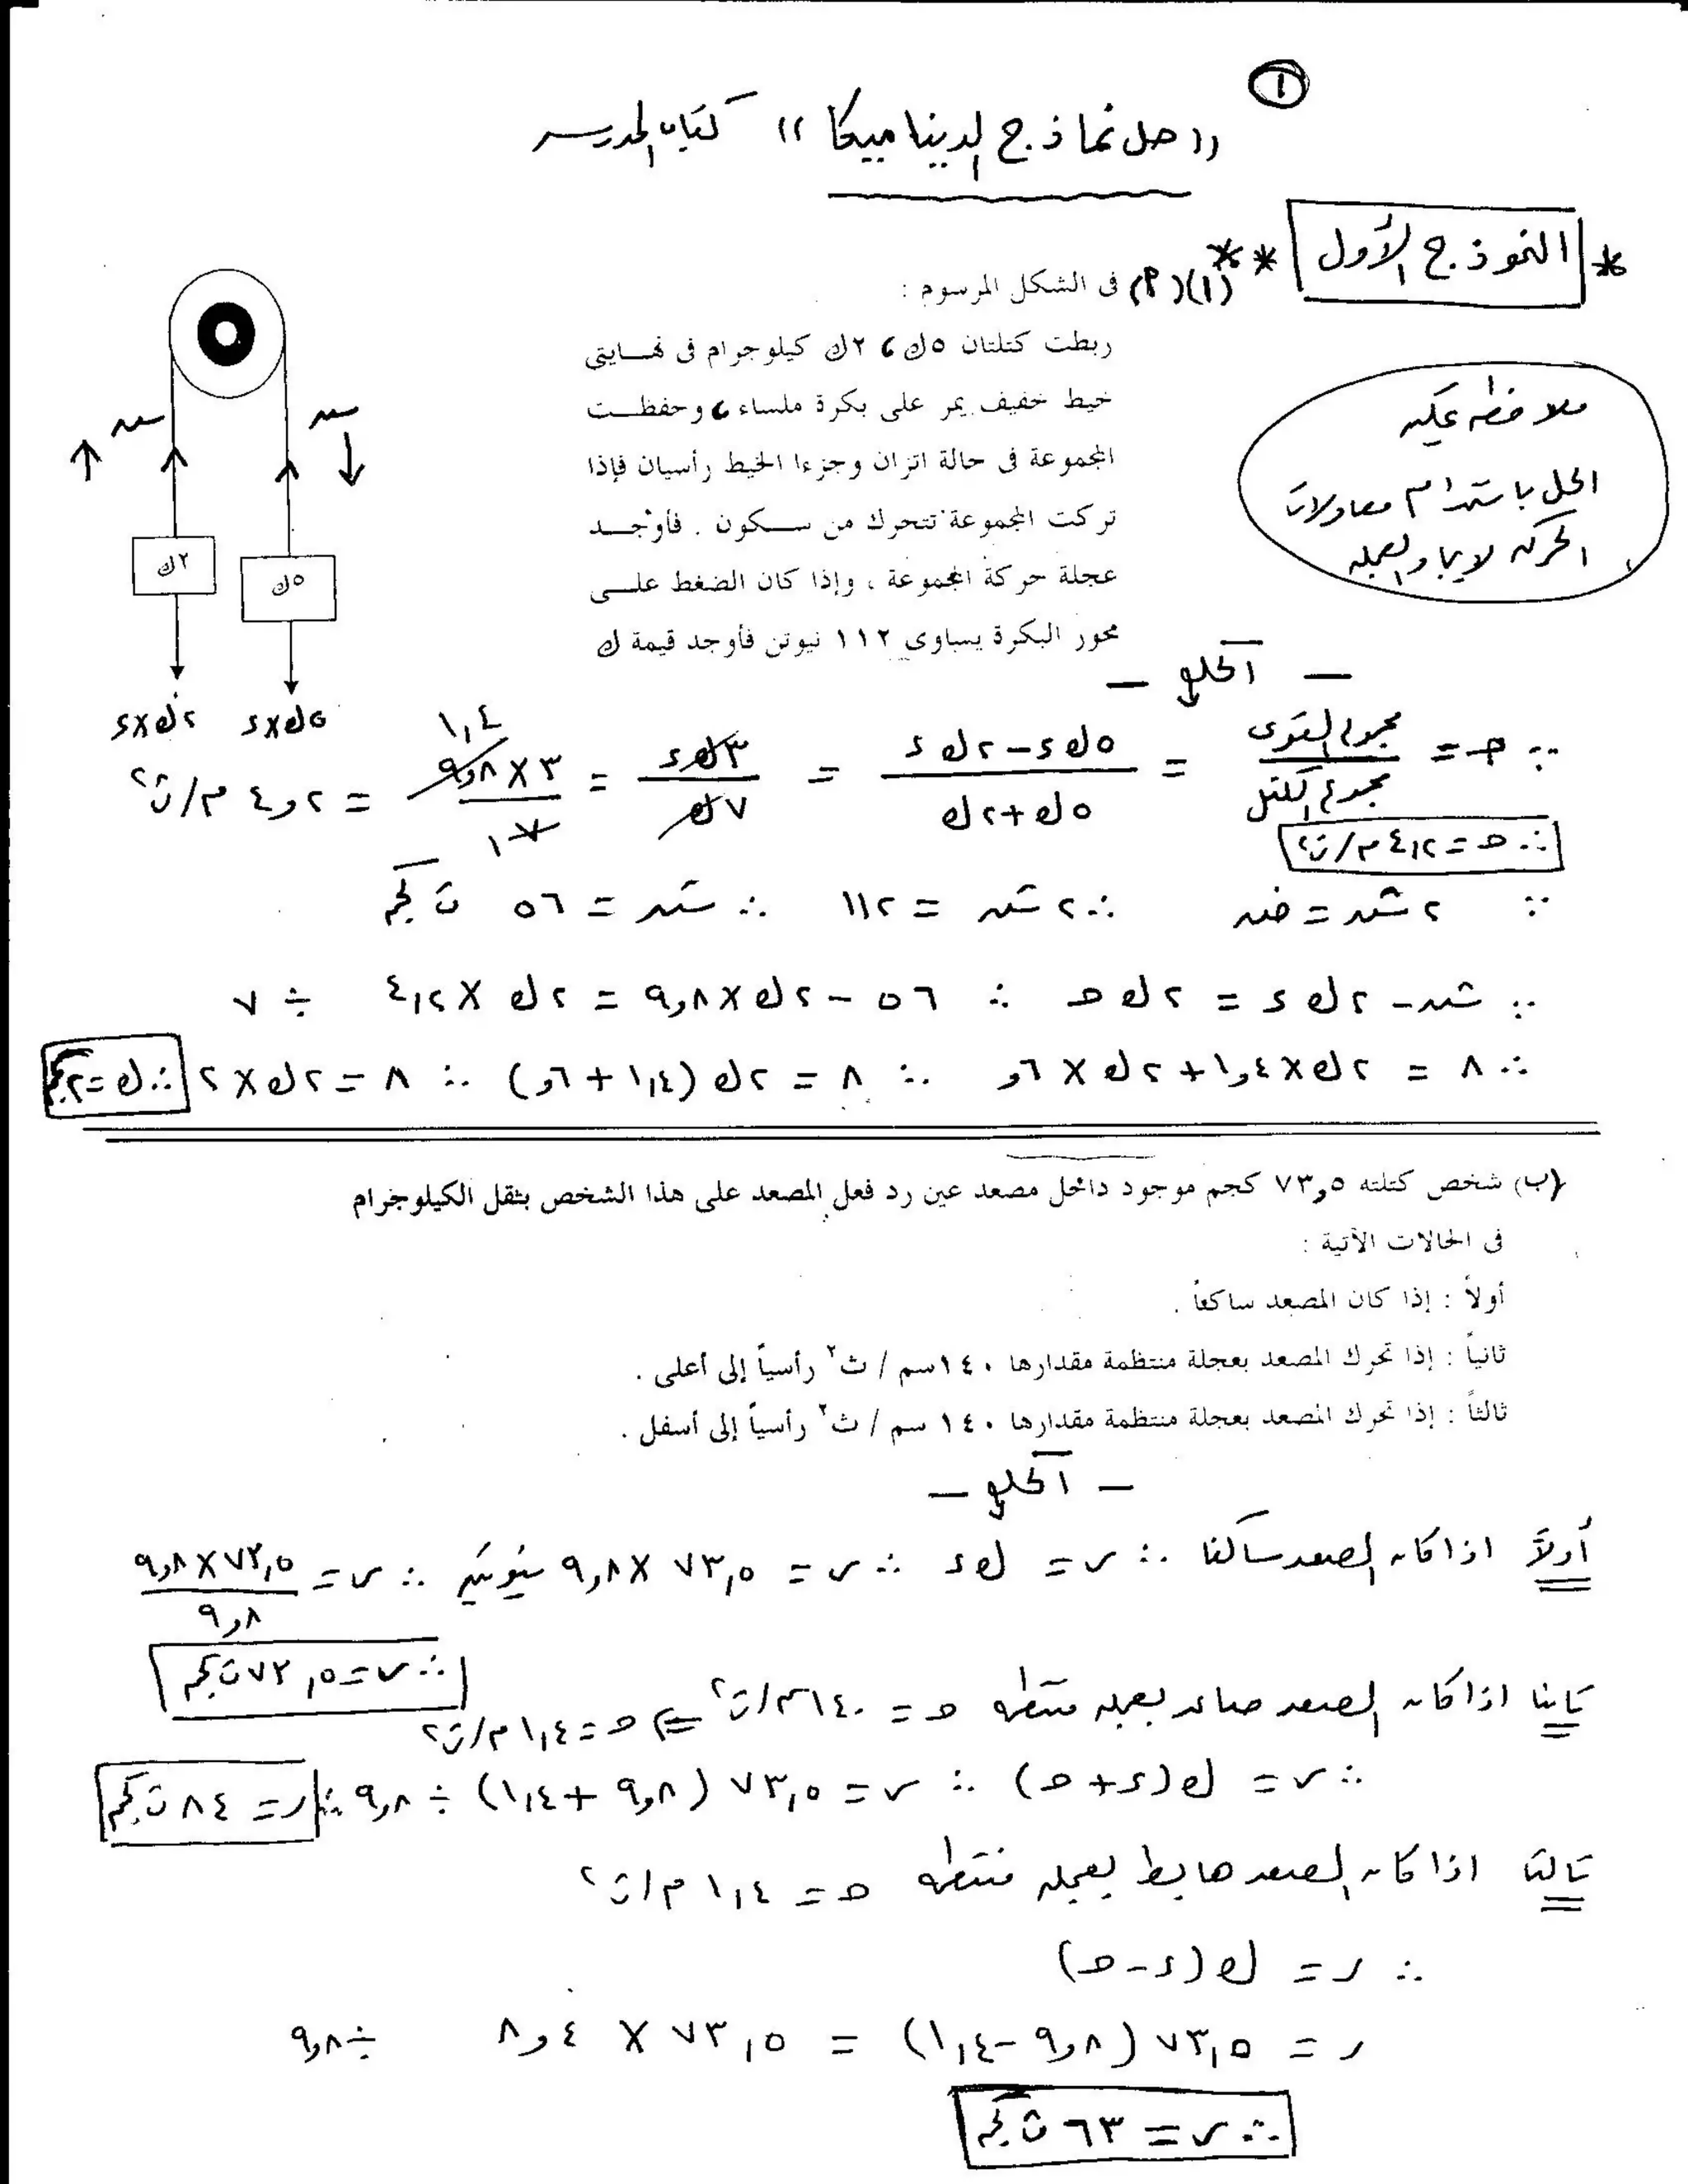 ١
(( حل نماذج الديناميكا )) كتاب المدرسة
* النموذج الأول **
(١)(٩) فى الشكل المرسوم :
ربطت كتلتان ٥ك ، ٢ك كيلوجرام فى نهايتى
خيط خفيف يمر على بكرة ملساء ، وحفظت
المجموعة فى حالة اتزان وجزءا الخيط رأسيان فإذا
تركت المجموعة تتحرك من سكون . فأوجد
عجلة حركة المجموعة ، وإذا كان الضغط على
محور البكرة يساوى ١١٢ نيوتن فأوجد قيمة ك
ملاحظه
الحل باستخدام معادلات
الحركه لايجاد العجله
شـ شـ
٢ك ٥ك
٢ك×٤ ٥ك×٤
- الحل -
∵ حـ = مجموع القوى / مجموع الكتل = ٥ك٤ - ٢ك٤ / ٥ك + ٢ك = ٣ك٤ / ٧ك = ٣ × ٩٫٨ / ٧ = ٤٫٢ م/ث٢
١٫٤ ١
∴ حـ = ٤٫٢ م/ث٢
∵ ٢ شـ = ضـ ∴ ٢ شـ = ١١٢ ∴ شـ = ٥٦ ث كجم
∵ شـ - ٢ك٤ = ٢ك حـ ∴ ٥٦ - ٢ك × ٩٫٨ = ٢ك × ٤٫٢ ÷ ٧
∴ ٨ = ٢ك × ١٫٤ + ٢ك × ٦٫ ∴ ٨ = ٢ك (١٫٤ + ٦٫) ∴ ٨ = ٢ك × ٢ ∴ ك = ٢ كجم
(ب) شخص كتلته ٧٣٫٥ كجم موجود داخل مصعد عين رد فعل المصعد على هذا الشخص بثقل الكيلوجرام
فى الحالات الآتية :
أولاً : إذا كان المصعد ساكناً .
ثانياً : إذا تحرك المصعد بعجلة منتظمة مقدارها ١٤٠ سم / ث٢ رأسياً إلى أعلى .
ثالثاً : إذا تحرك المصعد بعجلة منتظمة مقدارها ١٤٠ سم / ث٢ رأسياً إلى أسفل .
- الحل -
أولاً اذا كان المصعد ساكنا ∴ ر = ك٤ ∴ ر = ٧٣٫٥ × ٩٫٨ نيوتن ∴ ر = ٧٣٫٥ × ٩٫٨ / ٩٫٨
∴ ر = ٧٣٫٥ ث كجم
ثانيا اذا كان المصعد صاعد بعجله منتظمه حـ = ١٤٠ سم/ث٢ ⇐ حـ = ١٫٤ م/ث٢
∴ ر = ك(٤ + حـ) ∴ ر = ٧٣٫٥ (٩٫٨ + ١٫٤) ÷ ٩٫٨ ∴ ر = ٨٤ ث كجم
ثالثا اذا كان المصعد هابط بعجله منتظمه حـ = ١٫٤ م/ث٢
∴ ر = ك(٤ - حـ)
ر = ٧٣٫٥ (٩٫٨ - ١٫٤) = ٧٣٫٥ × ٨٫٤ ÷ ٩٫٨
∴ ر = ٦٣ ث كجم